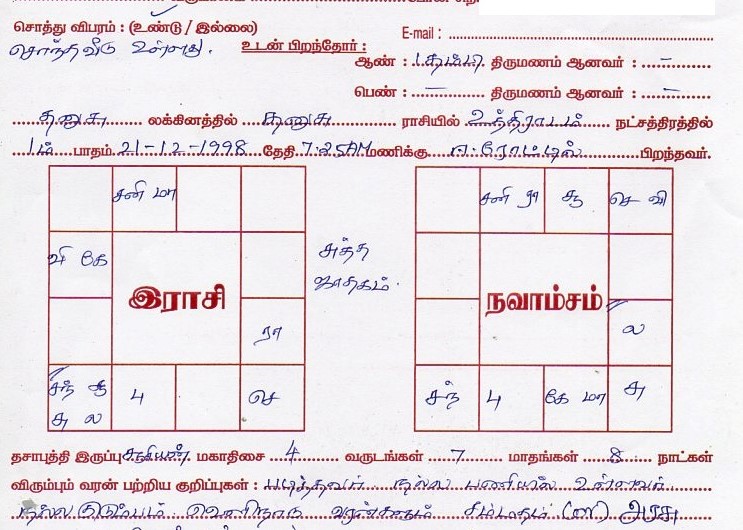 சொத்து விபரம் : (உண்டு / இல்லை)
E-mail :
சொந்த வீடு உள்ளது. உடன் பிறந்தோர் :
ஆண் : 1 தம்பி திருமணம் ஆனவர் : –
பெண் : – திருமணம் ஆனவர் : –
தனுசு லக்கினத்தில் தனுசு ராசியில் உத்திராடம் நட்சத்திரத்தில்
1ம் பாதம் 21-12-1998 தேதி 7:25AM மணிக்கு ஈரோட்டில் பிறந்தவர்.
சனி மா
சனி ரா சூ செ வி
வி கே
சுத்த
ஜாதகம்.
இராசி
நவாம்சம்
ரா
ல
சந் சூ
சு ல
4
செ
சந் 4 கே மா சு
தசாபுத்தி இருப்பு சூரியன் மகாதிசை 4 வருடங்கள் 7 மாதங்கள் 8 நாட்கள்
விரும்பும் வரன் பற்றிய குறிப்புகள் : படித்தவர் நல்ல பணியில் உள்ளவர்
நல்ல குடும்பம் வெளிநாடு வரன்களும் சம்மதம் அரசு